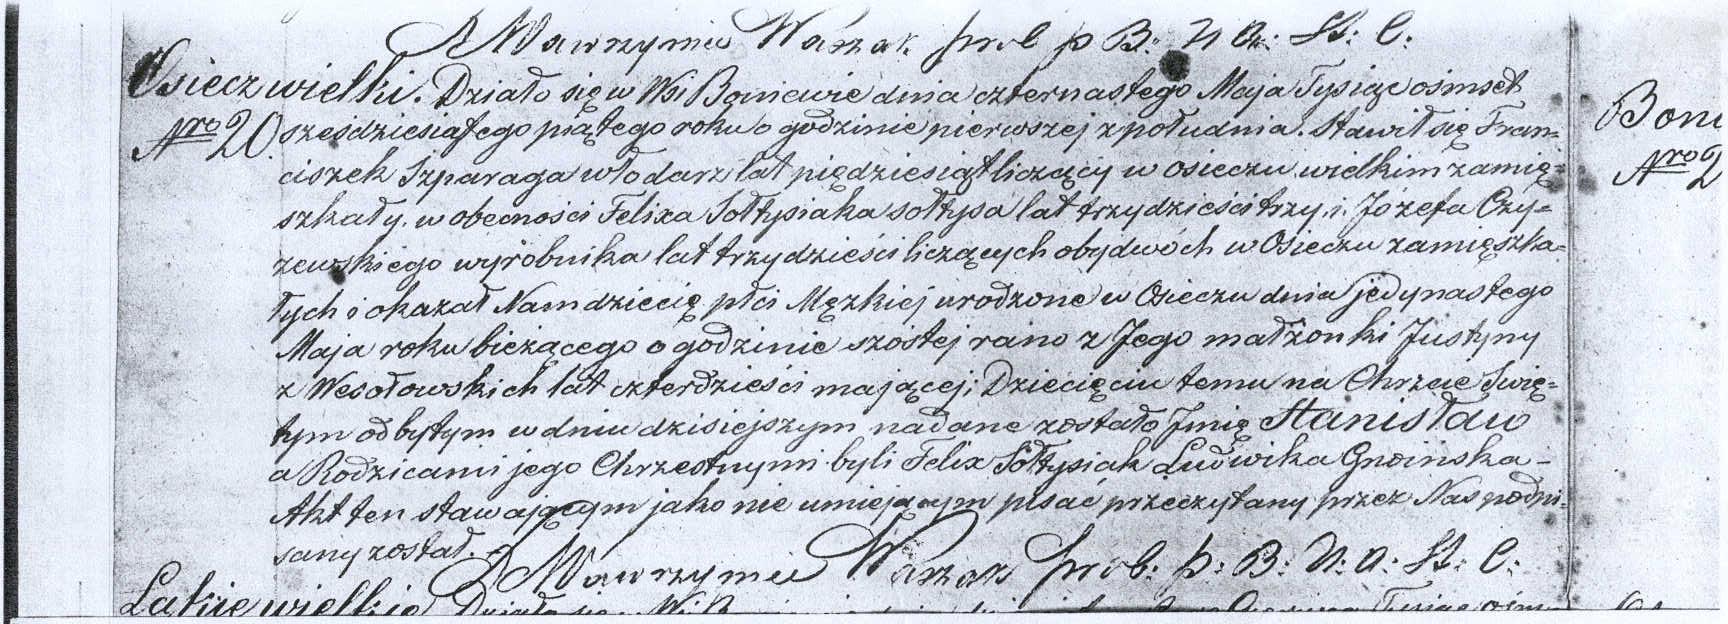 X Wawrzyniec Warzak prob p B: N A: St: C:
Osiecz wielki. Działo się w Wsi Boniewie dnia czternastego Maja Tysiąc ośmset
Nro 20. sześdziesiątego piątego roku o godzinie pierwszej z południa. Stawił się Fran=
ciszek Szparaga włodarz lat piędziesiąt liczący w Osieczu wielkim zamię=
szkały, w obecności Felixa Sołtysiaka sołtysa lat trzydzieści trzy, i Józefa Czy=
zewskiego wyrobnika lat trzydzieści liczących obydwóch w Osieczu zamięszka=
łych i okazał Nam dziecię płci Męzkiej urodzone w Osieczu dnia jedynastego
Maja roku bieżącego o godzinie szóstej rano z Jego małżonki Justyny
z Wesołowskich lat czterdzieści mającej; Dziecięciu temu na Chrzcie Swię=
tym odbytym w dniu dzisiejszym nadane zostało Jmię Stanisław
a Rodzicami jego Chrzestnymi byli Felix Sołtysiak Ludwika Gnoińska –
Akt ten stawającym jako nie umiejącym pisać przeczytany przez Nas podpi=
sany został.
X Wawrzyniec Warzak prob: p: B: N: A: St: C:
Lakie wielkie Działo się
Boni
Nro 2